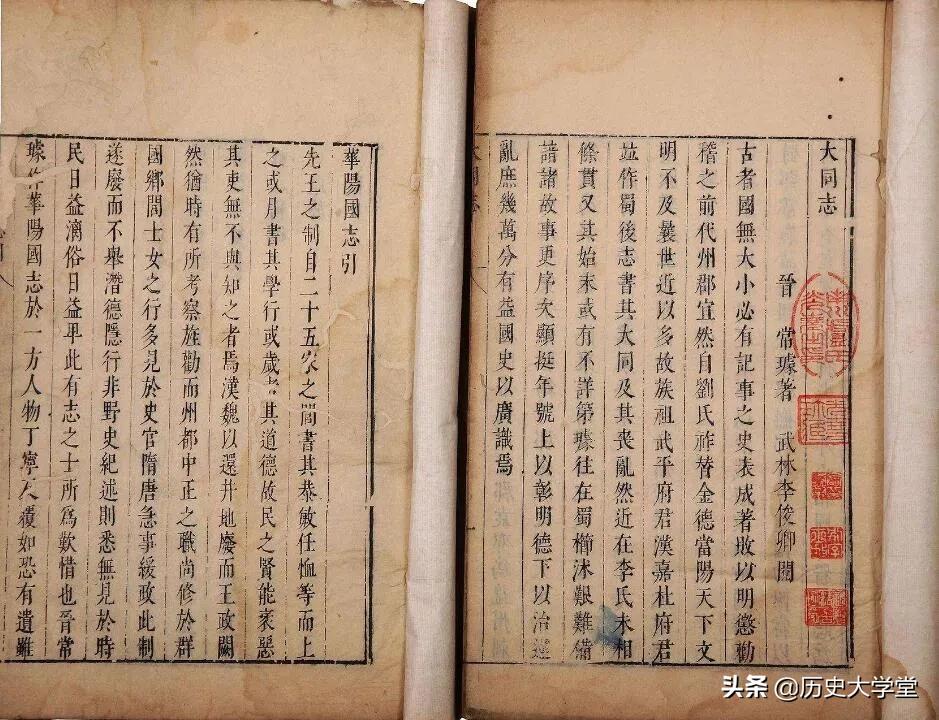 大同志
晉 常璩著 武林李俊卿閱
古者國無大小必有記事之史表成著敗以明懲勸
稽之前代州郡宜然自劉氏祚替金德當陽天下文
明不及曩世近以多故族祖武平府君漢嘉杜府君
竝作蜀後志書其大同及其喪亂然近在李氏未相
條貫又其始末或有不詳第璩往在蜀櫛沐艱難備
諳諸故事更序次顯挺年號上以彰明德下以治違
亂庶幾萬分有益國史以廣識焉
華陽國志引
先王之制自二十五家之閭書其恭敏任恤等而上
之或月書其學行或歲考其道德故民之賢能衺惡
其吏無不與知之者焉漢魏以還井地廢而王政闕
然猶時有所考察旌勸而州都中正之職尚修於群
國鄉閭士女之行多見於史官隋唐急事緩政此制
遂廢而不舉潛德隱行非野史紀述則悉無見於時
民日益漓俗日益卑此有志之士所爲歎惜也晉常
璩作華陽國志於一方人物丁寧反覆如恐有遺雖
头条 @历史大学堂